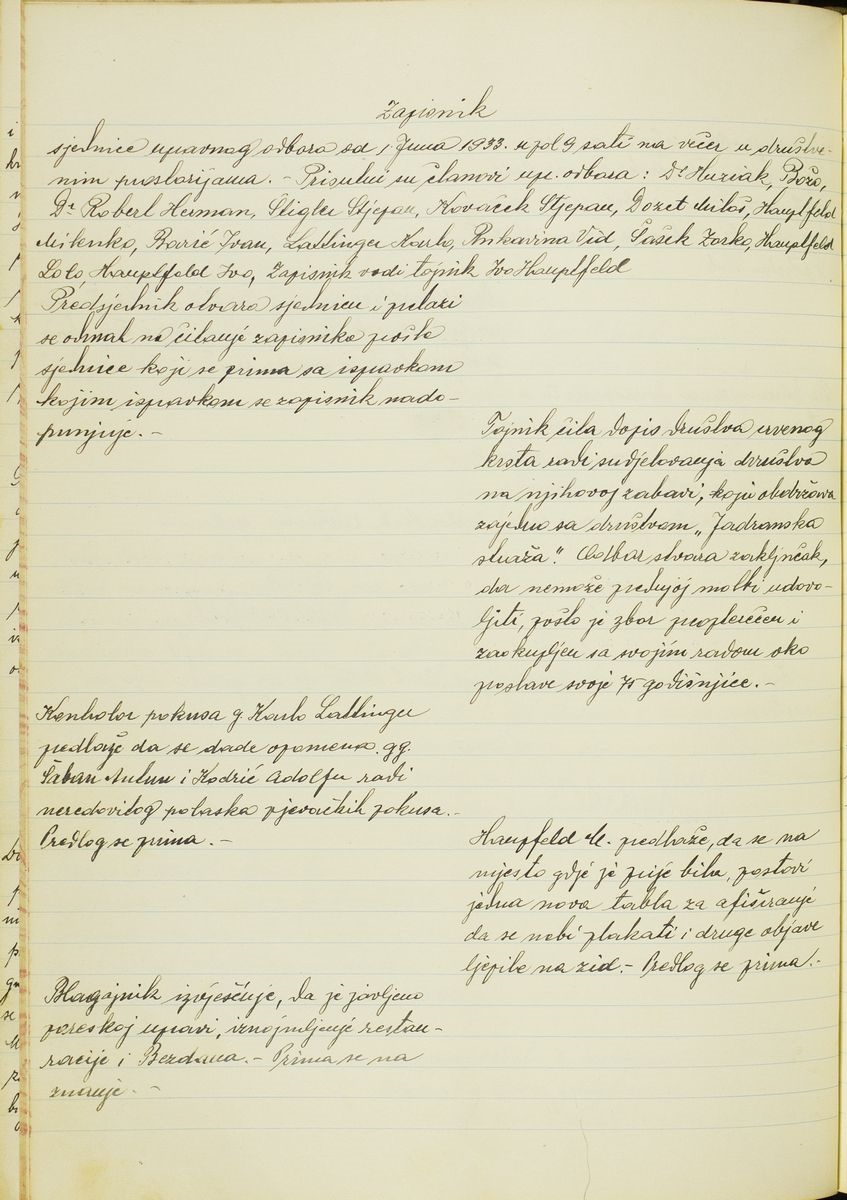 Zapisnik
sjednice upravnog odbora od 1 Juna 1933. u pol 9 sati na večer u društve-
nim prostorijama. - Prisutni su članovi upr. odbora: Dr Huziak, Božo,
Dr Robert Herman, Štigler Stjepan, Kovaček Stjepan, Dozet Miloš, Hauptfeld
Milenko, Barić Ivan, Lattinger Karlo, Prskavina Vid, Šašek Zorko, Hauptfeld
Loto, Hauptfeld Ivo, Zapisnik vodi tajnik Ivo Hauptfeld
Predsjednik otvara sjednicu i prelazi
se odmah na čitanje zapisnika prošle
sjednice koji se prima sa ispravkom
kojim ispravkom se zapisnik nado-
punjuje. -
Tajnik čita dopis društva crvenog
krsta radi sudjelovanja društva
na njihovoj zabavi, koju obdržava
zajedno sa društvom „Jadranska
straža". Odbor stvara zaključak,
da nemože prednjoj molbi udovo-
ljiti, pošto je zbor preopterećen i
zaokupljen sa svojim radom oko
proslave svoje 75 godišnjice. -
Kontrolor pokusa g Karlo Lattinger
predlaže da se dade opomena gg.
Šaban Antunu i Kodrić Adolfu radi
neredovitog polaska pjevačkih pokusa. -
Predlog se prima. -
Haupfeld M. predlaže, da se na
mjesto gdje je prije bila, postavi
jedna nova tabla za afiširanje
da se nebi plakati i druge objave
ljepile na zid. - Predlog se prima. -
Blagajnik izvješćuje, da je javljeno
poreskoj upravi, iznajmljenje restau-
racije i Bezdana. - Prima se na
znanje. -